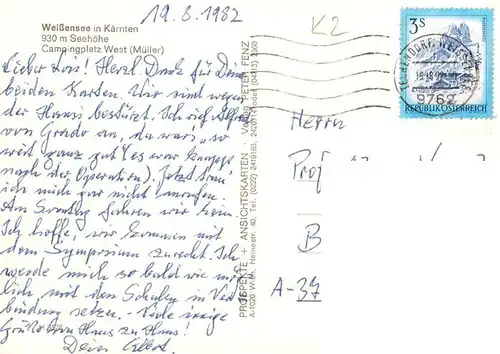 19.8.1982
K2
Weißensee in Kärnten
930 m Seehöhe
Campingplatz West (Müller)
Lieber Lois! Herzl. Dank für Deine
beiden Karten. Wir sind wegen
der Hansi bestürzt. Ich rief Alfred
von Grado an, da war's so
weit ganz gut (es war knapp
nach der Operation). Jetzt trau'
ich mich gar nicht anrufen.
Am Sonntag fahren wir heim.
Ich hoffe, wir kommen mit
dem Symposium zurecht. Ich
werde mich so bald wie mög-
lich mit den Schulen in Ver-
bindung setzen. - Viele innige
Grüße von Haus zu Haus!
Dein
PROSPEKTE + ANSICHTSKARTEN · Verlag PETER FENZ
A-1020 Wien, Heinestr. 40, Tel. (0222) 2449183,
3 S
REPUBLIK ÖSTERREICH
9762
Herrn
Prof
B
A-37